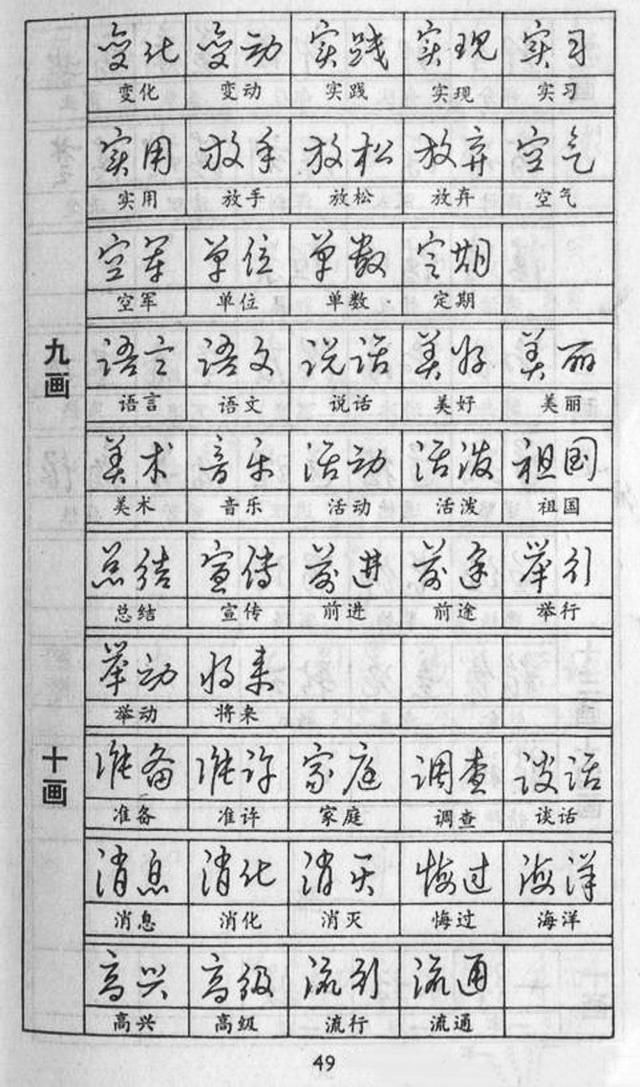 变化 变动 实践 实现 实习
变化 变动 实践 实现 实习
实用 放手 放松 放弃 空气
实用 放手 放松 放弃 空气
空军 单位 单数 定期
空军 单位 单数 定期
九画
语言 语文 说话 美好 美丽
语言 语文 说话 美好 美丽
美术 音乐 活动 活泼 祖国
美术 音乐 活动 活泼 祖国
总结 宣传 前进 前途 举行
总结 宣传 前进 前途 举行
举动 将来
举动 将来
十画
准备 准许 家庭 调查 谈话
准备 准许 家庭 调查 谈话
消息 消化 消灭 悔过 海洋
消息 消化 消灭 悔过 海洋
高兴 高级 流行 流通
高兴 高级 流行 流通
49